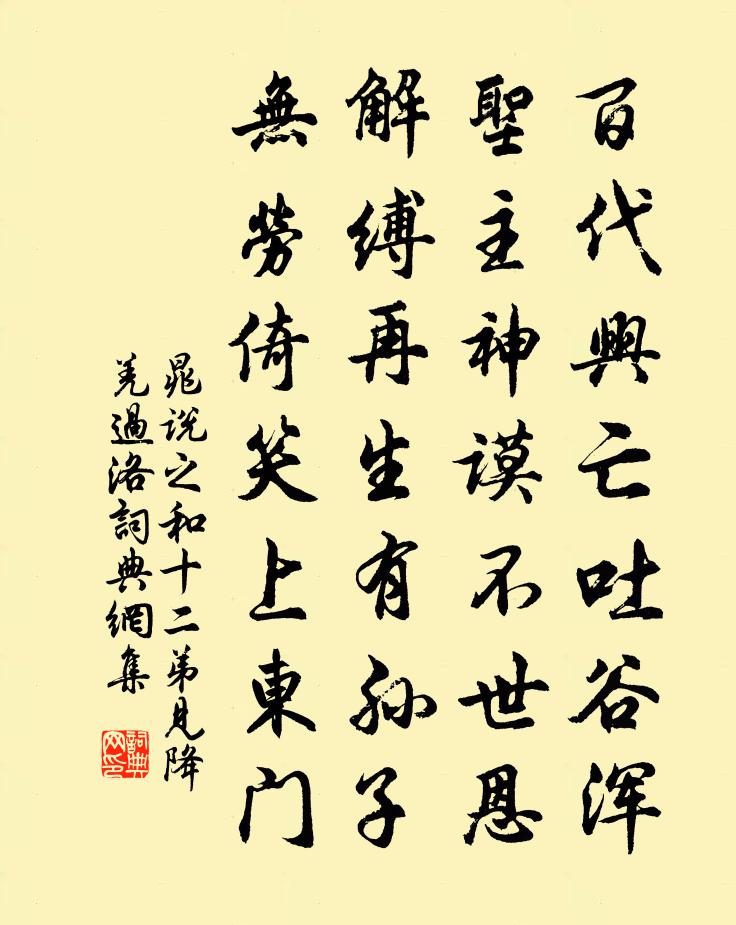 百代興亡吐谷浑
聖主神謨不世恩
解縛再生有孫子
無勞倚笑上東门
晁说之和十二弟見降
羌過洛詞典網集
詞典
网印